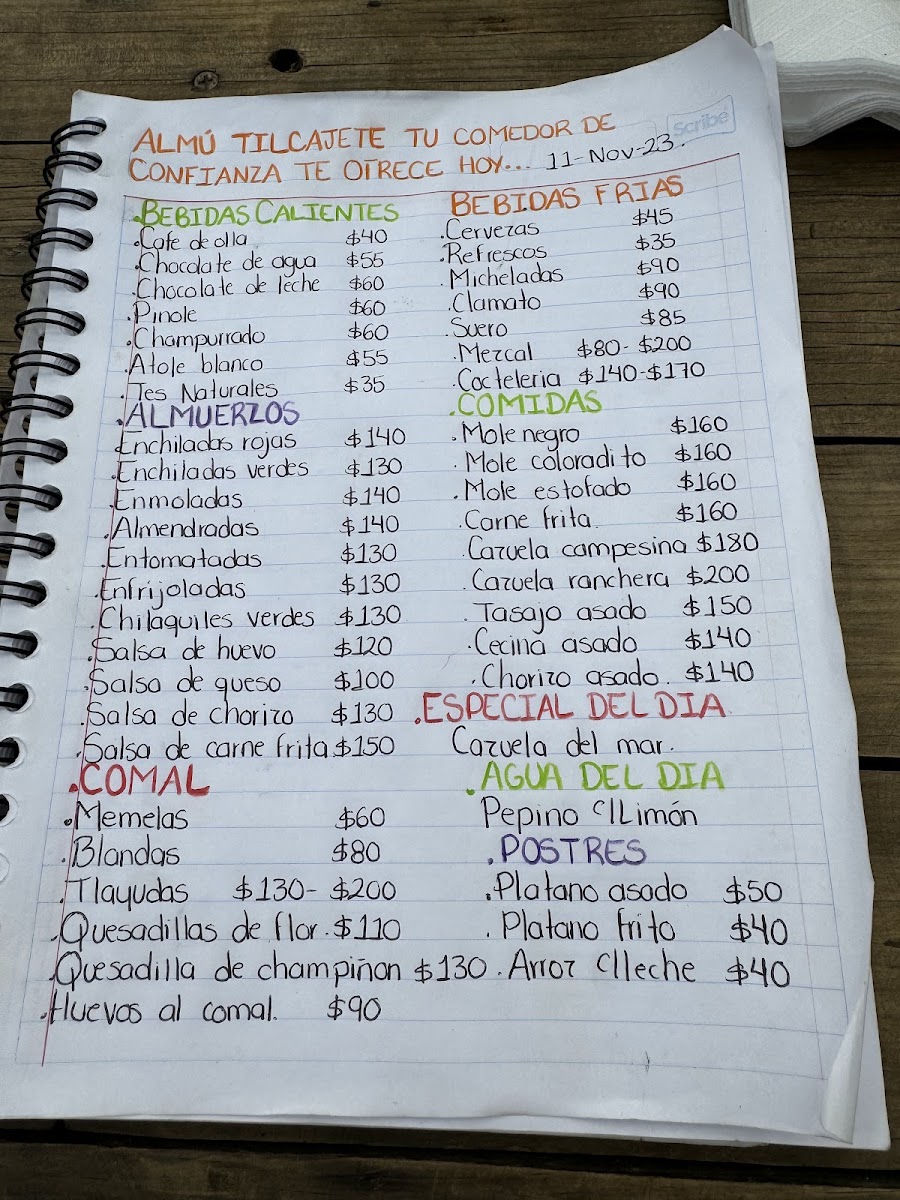 scribe
ALMÚ TILCAJETE TU COMEDOR DE
CONFIANZA TE OFRECE HOY... 11-Nov-23.
.BEBIDAS CALIENTES
.Cafe de olla $40
.Chocolate de agua $55
.Chocolate de leche $60
.Pinole $60
.Champurrado $60
.Atole blanco $55
.Tes Naturales $35
.ALMUERZOS
.Enchiladas rojas $140
.Enchiladas verdes $130
.Enmoladas $140
.Almendradas $140
.Entomatadas $130
.Enfrijoladas $130
.Chilaquiles verdes $130
.Salsa de huevo $120
.Salsa de queso $100
.Salsa de chorizo $130
.Salsa de carne frita $150
.COMAL
.Memelas $60
.Blandas $80
.Tlayudas $130- $200
.Quesadillas de flor. $110
.Quesadilla de champiñon $130
.Huevos al comal. $90
BEBIDAS FRIAS
.Cervezas $45
.Refrescos $35
.Micheladas $90
.Clamato $90
.Suero $85
.Mezcal $80- $200
.Cocteleria $140-$170
.COMIDAS
.Mole negro $160
.Mole coloradito $160
.Mole estofado $160
.Carne frita. $160
.Cazuela campesina $180
.Cazuela ranchera $200
.Tasajo asado $150
.Cecina asado $140
.Chorizo asado. $140
.ESPECIAL DEL DIA.
Cazuela del mar.
.AGUA DEL DIA
Pepino c/Limón
.POSTRES
.Platano asado $50
.Platano frito $40
.Arroz c/leche $40